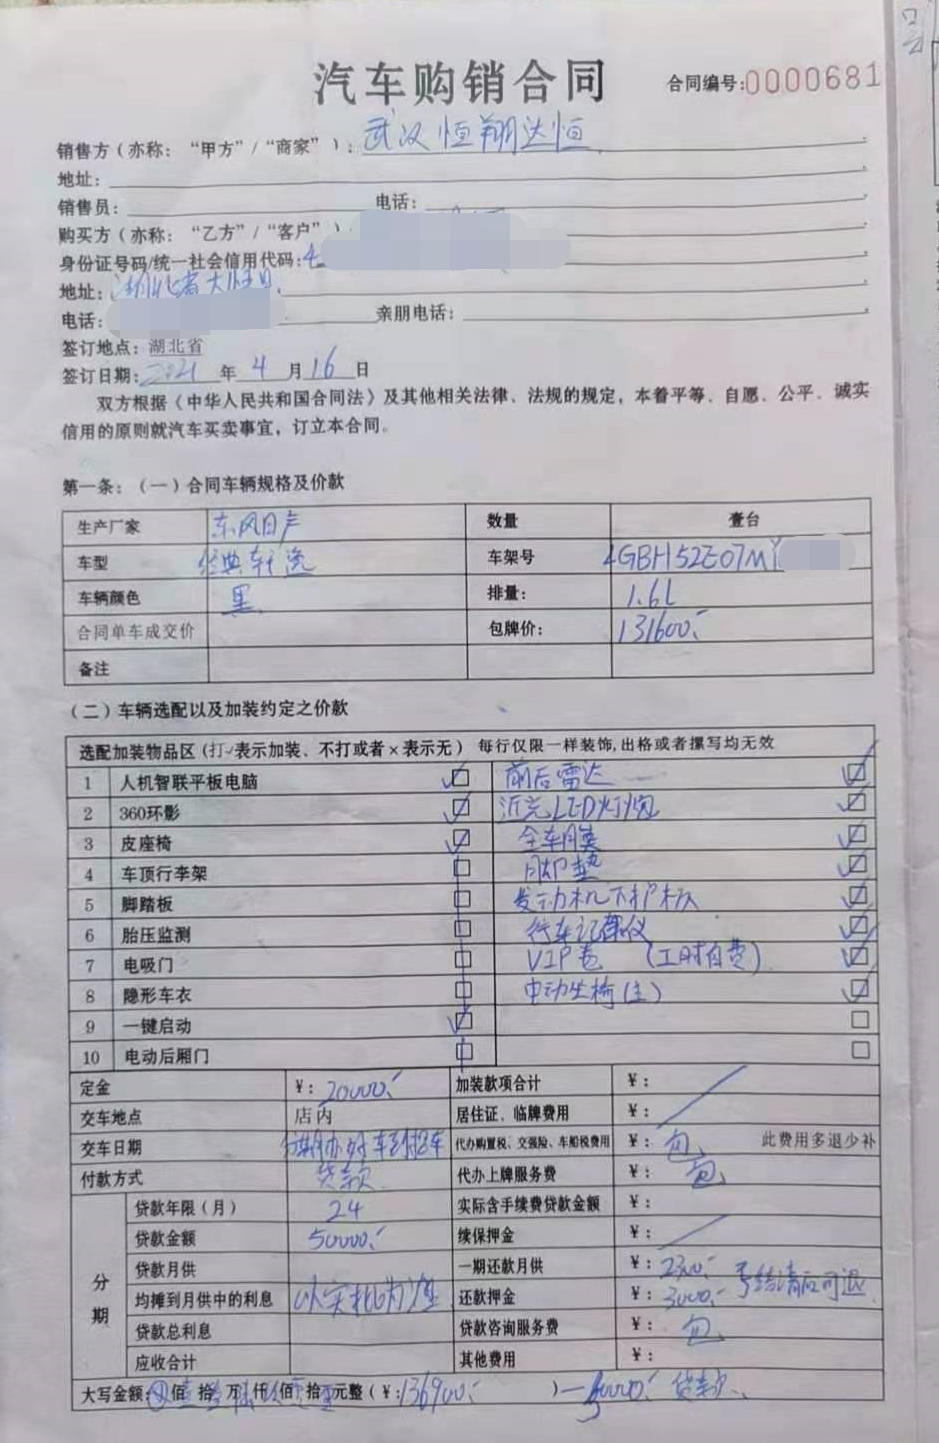 汽车购销合同
合同编号:0000681
销售方(亦称:“甲方”/“商家”):武汉恒翔达恒
地址:
销售员: 电话:
购买方(亦称:“乙方”/“客户”)
身份证号码/统一社会信用代码:4
地址:湖北省大悟县
电话: 亲朋电话:
签订地点:湖北省
签订日期:2021年4月16日
双方根据《中华人民共和国合同法》及其他相关法律、法规的规定,本着平等、自愿、公平、诚实
信用的原则就汽车买卖事宜,订立本合同。
第一条:(一)合同车辆规格及价款
生产厂家 东风日产 数量 壹台
车型 经典轩逸 车架号 LGBH52E07MY
车辆颜色 黑 排量: 1.6L
合同单车成交价 包牌价: 131600
备注
(二)车辆选配以及加装约定之价款
选配加装物品区(打✓表示加装、不打或者×表示无) 每行仅限一样装饰,出格或者撰写均无效
1 人机智联平板电脑 ☑ 前后雷达 ☑
2 360环影 ☑ 近光LED灯炮 ☑
3 皮座椅 ☑ 全车膜 ☑
4 车顶行李架 □ 脚垫 ☑
5 脚踏板 □ 发动机下护板 ☑
6 胎压监测 □ 行车记录仪 ☑
7 电吸门 □ VIP卷 (工时自费) ☑
8 隐形车衣 □ 电动坐椅(主) ☑
9 一键启动 ☑ □
10 电动后厢门 □ □
定金 ¥:20000 加装款项合计 ¥:
交车地点 店内 居住证、临牌费用 ¥:
交车日期 代办购置税、交强险、车船税费用 ¥:包 此费用多退少补
付款方式 贷款 代办上牌服务费 包
分期
贷款年限(月) 24 实际含手续费贷款金额 ¥:
贷款金额 50000 续保押金 ¥:
贷款月供 一期还款月供 ¥:2300
均摊到月供中的利息 以实批为准 还款押金 ¥:3000 结清后可退
贷款总利息 贷款咨询服务费 ¥:包
应收合计 其他费用 ¥:
大写金额: 佰 拾 万 仟 佰 拾 元整(¥:136900)— 50000 贷款